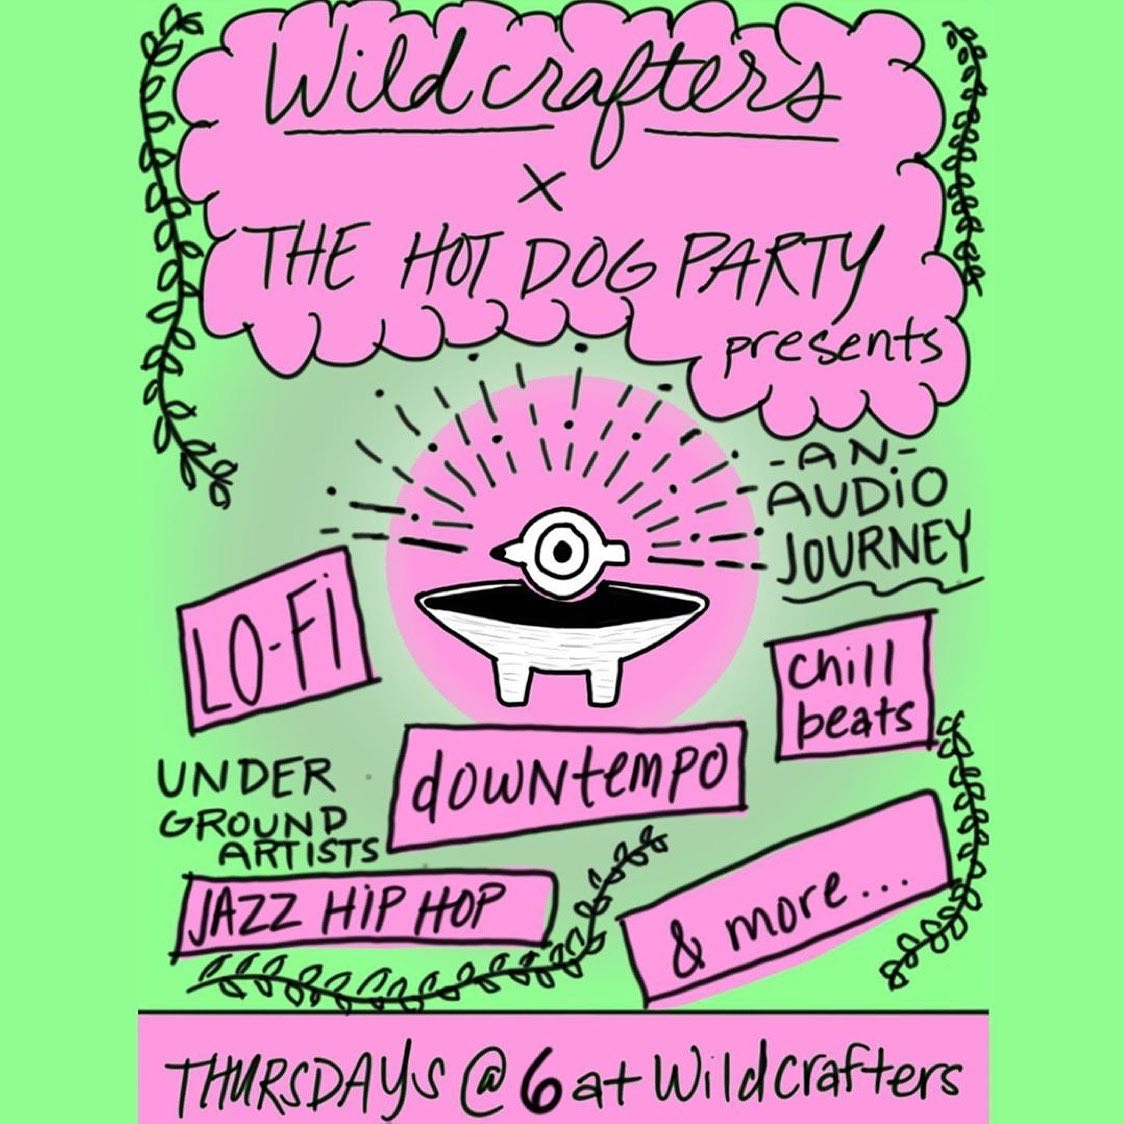 Wildcrafters
X
THE HOT DOG PARTY
presents
-AN-
AUDiO
JOURNEY
LO-Fi
chill
beats
downtempo
UNDER
GROUND
ARTISTS
JAZZ HiP HOP
& more...
THURSDAYS @ 6 at Wildcrafters